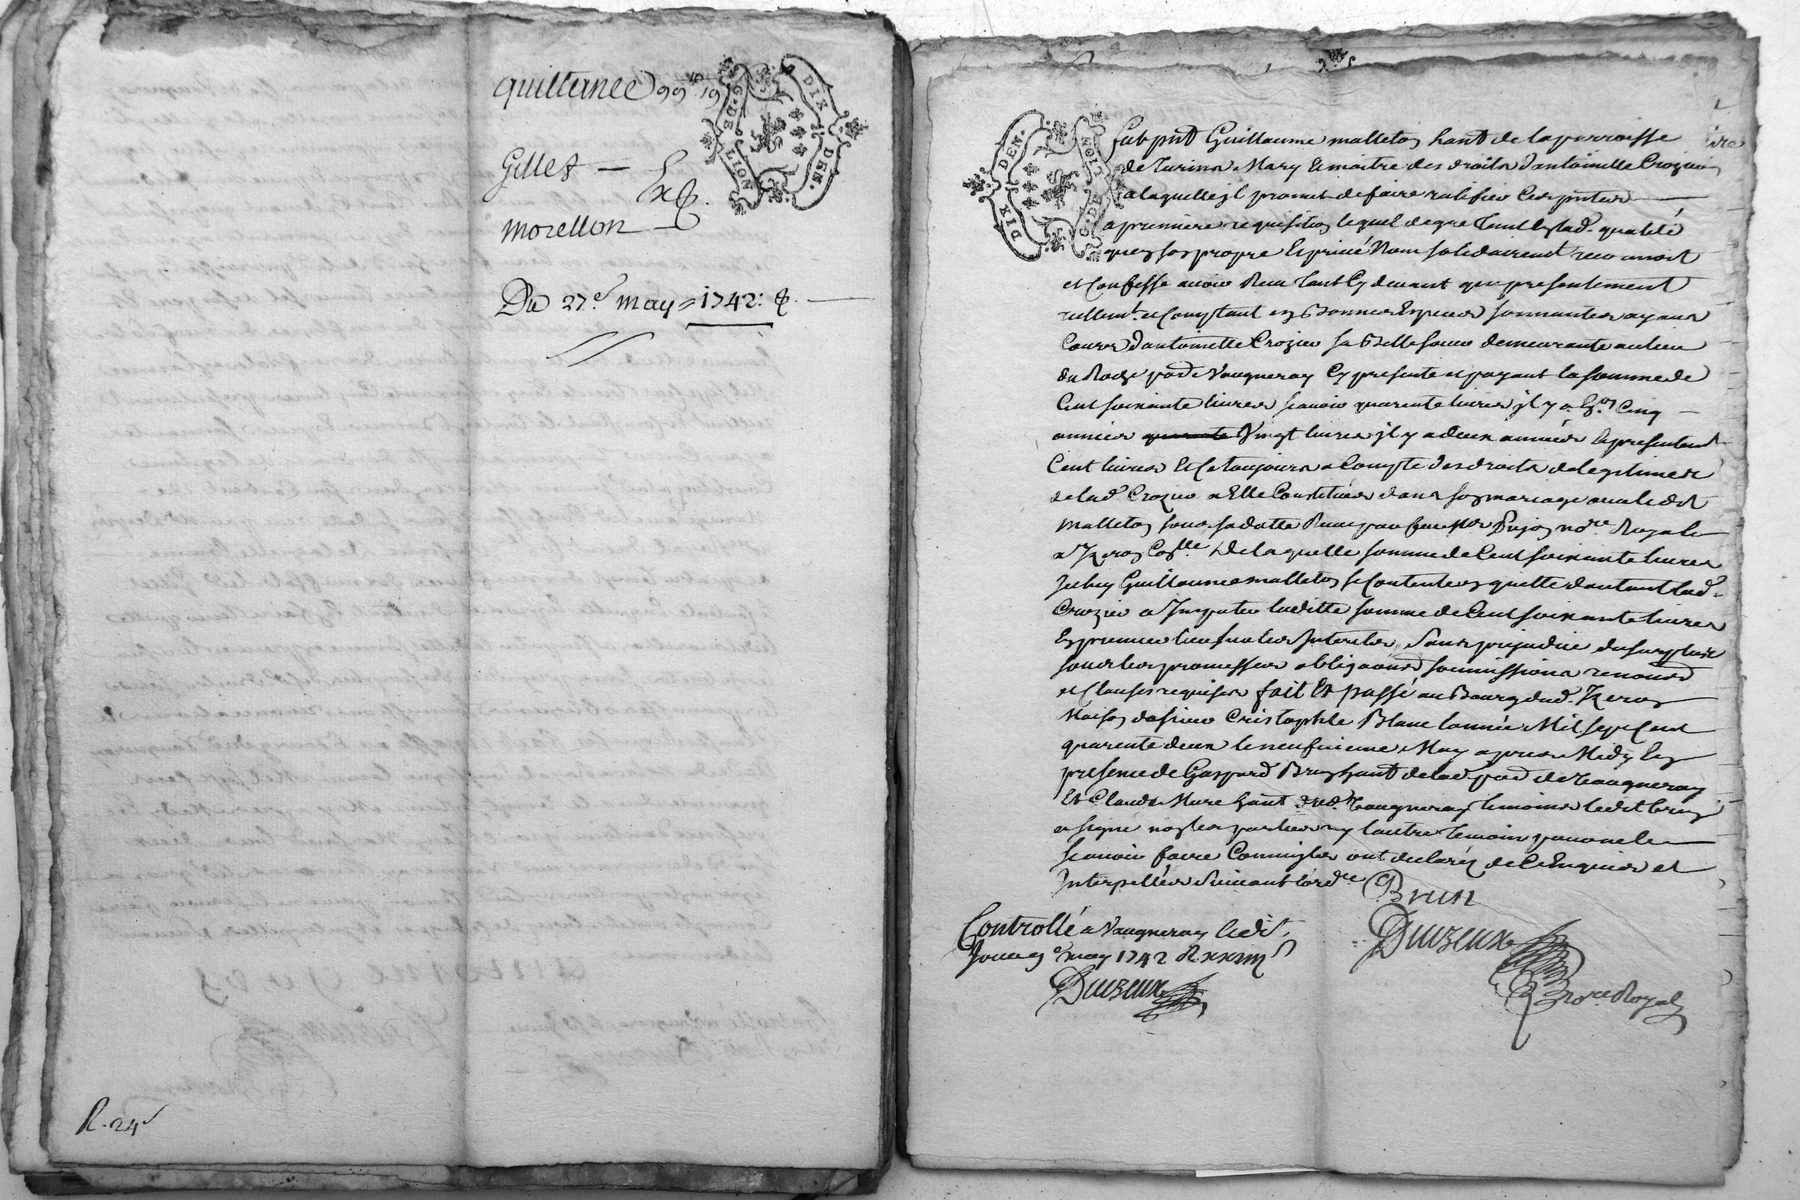 quittance 99 19
Gilles —
Exp.
morellon —
Du 27e. may = 1742: &. —
R. 24
G. DE LION
DIX DEN.
G. DE LION
DIX DEN.
fut pnt Guillaume malleton hant de la parroisse
de Turins Mary Et maitre des droits d'antoinette Crozier
a laquelle jl promet de faire ratifier Ces pntes —
a premiere requisition lequel de gre Tant Esd. qualité
quen son propre Et privé Nom solidairement reconnoit
et Confesse avoir Reçu Tant Cy devant que presentement
rellemt. et Comptant en Bonnes Especes sonnantes ayant
Cours d'antoinette Crozier sa Belle soeur demeurante au lieu
du Rocly parse. Vaugneray Cy presente et payant la somme de
Cent soixante livres scavoir quarente livres jl y a Cinq —
années quarente Vingt livres jl y a deux années Et presentement
Cent livres Et Ce toujours a Compte des droits de legitimes
de lad. Crozier a Elle Constitués dans son mariage avec ledit
malleton sous sa datte Reçu par Me Pujon nore. Royal
a Yzeron De laquelle somme de Cent soixante livres
Icelluy Guillaume malleton se Contente en quitte d'autant lad.
Crozier a Imputer laditte somme de Cent soixante livres
En premier lieu sur les Interets, sans prejudice du surplus
sous les promesses obligaons soumissions renonces
et Clauses requises fait Et passé au Bourg dud. Yzeron
Maison de sieur Cristophle Blanc l'année Mil sept Cent
quarente deux le neufvieme May apres Midy En
presence de Gaspard Brun hant de lad. parse. de Vaugneray
Et Claude Mure hant dud. Vaugneray temoins ledit brun
a signe non les parties ny l'autre Temoin pour ne le —
scavoir faire Comme ils ont declaré de Ce Enquis et
Interpellés suivant l'ordce.
Brun
Controllé a Vaugneray ledit
Jour 9e may 1742 R xxiiij s
Duizeux
Duizeux
nore. Royal